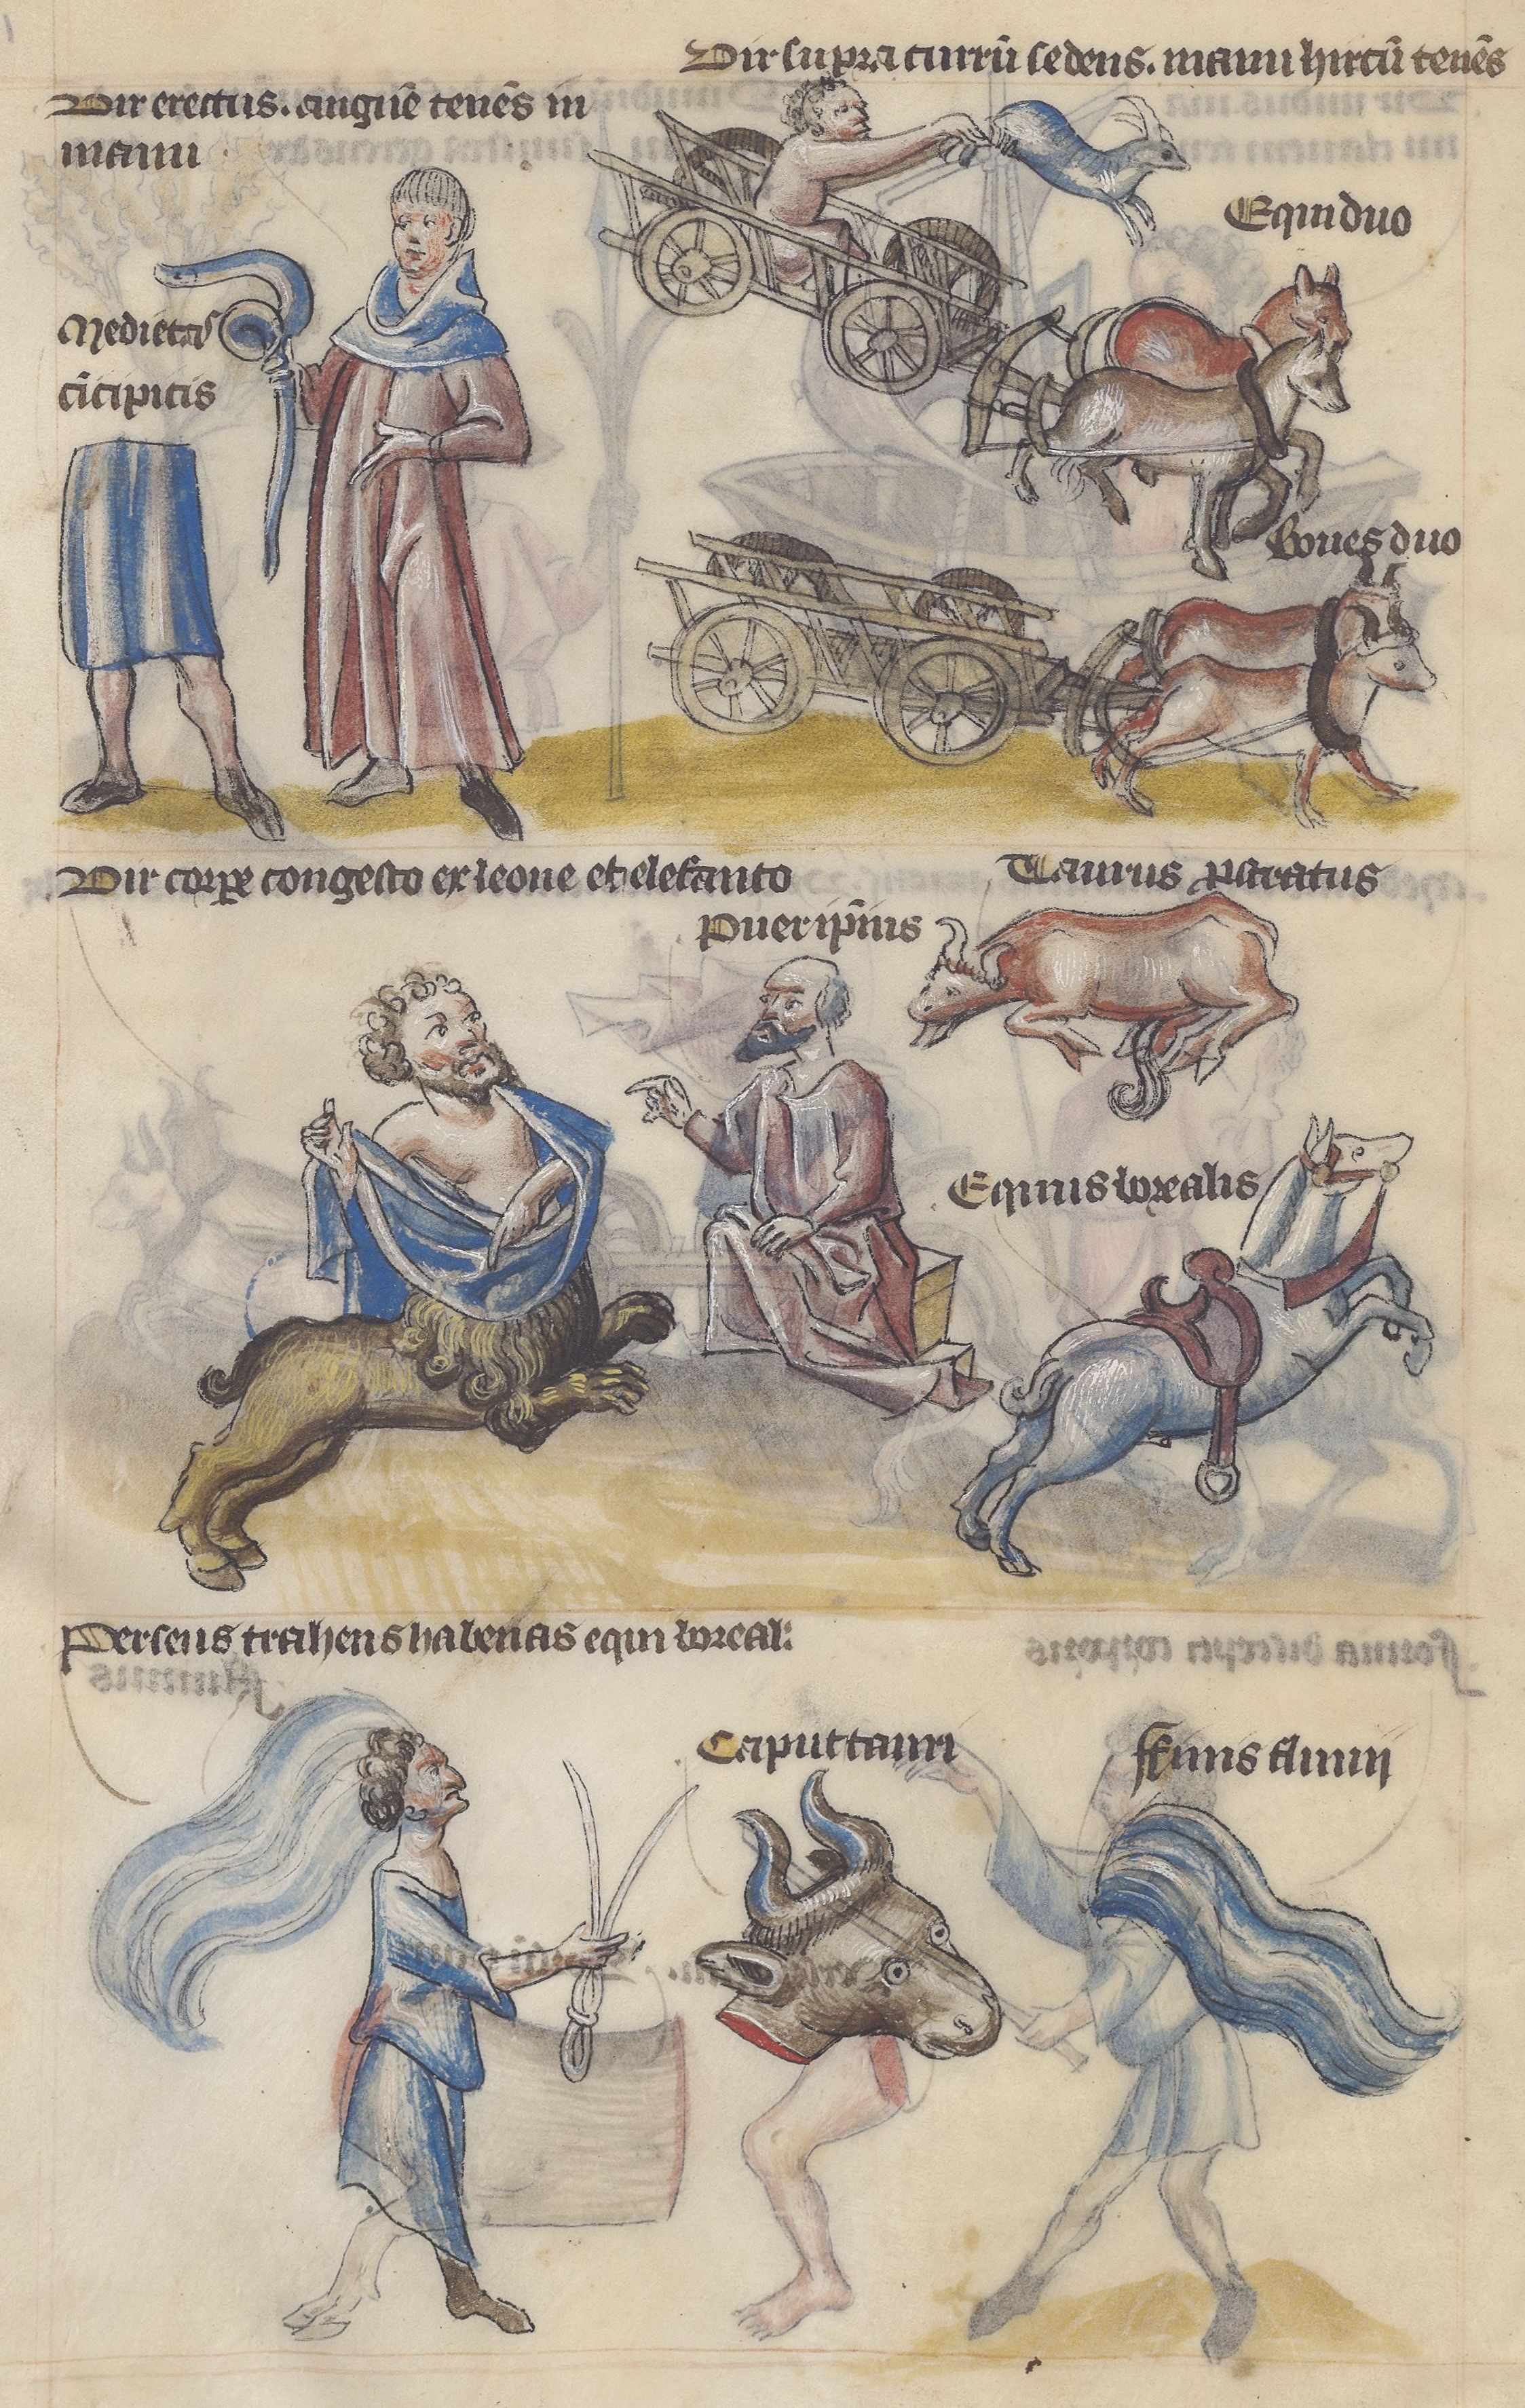 Vir supra currū sedens. manu hircū tenēs
Vir erectus. anguē tenēs in
manu
Equi duo
Medietas
cīcipitis
Boues duo
Vir corpe congesto ex leone et elefanto
Taurus pstratus
Puer ip̄ius
Equus borealis
Perseus trahens habenas equi boreal:
Caput tauri
ffinis fluuij